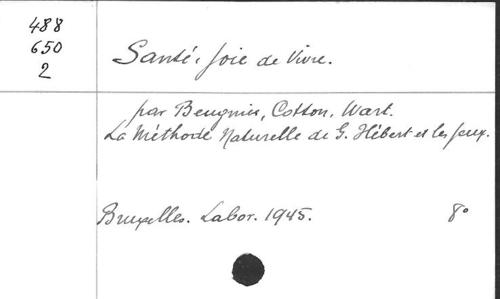 488
650
2
Santé, Joie de Vivre.
par Beugnier, Cotton, Wart.
La Méthode Naturelle de G. Hébert et les Jeux.
Bruxelles. Labor. 1945. 8°